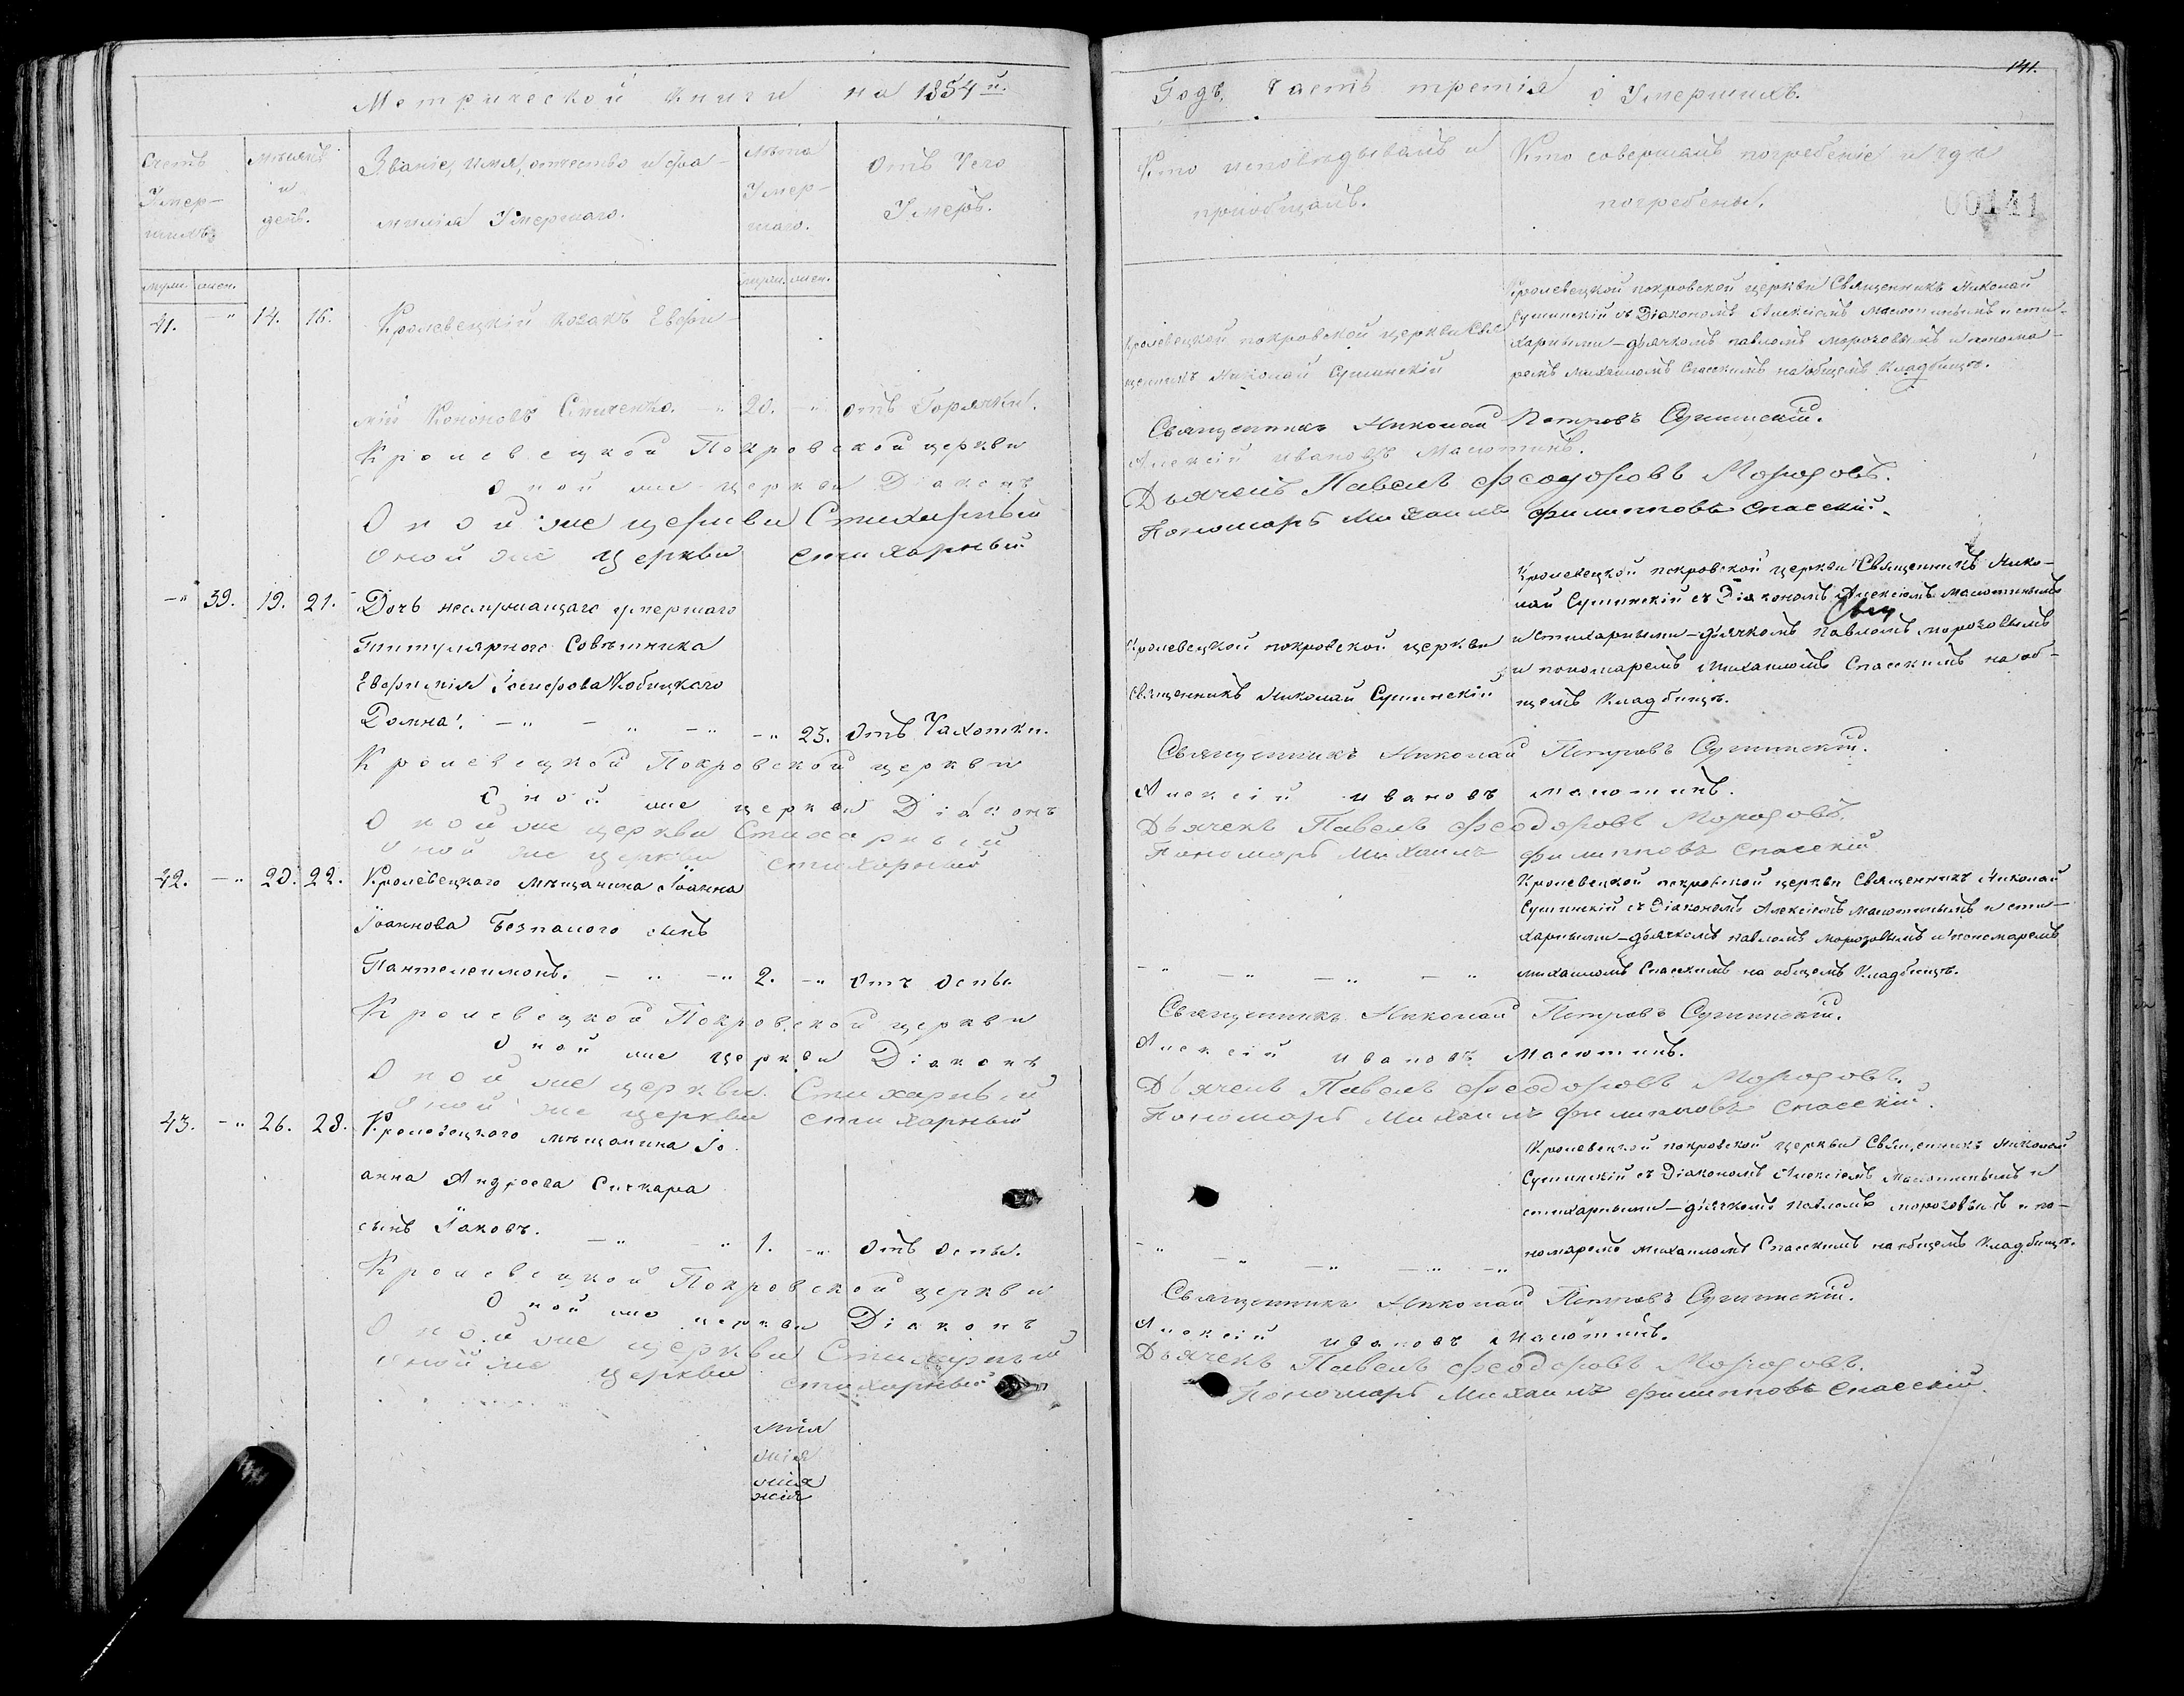 Метрической книги на 1854й.
Счетъ Умер-шихъ
Мѣсяцъ и день.
Званіе, имя, отчество и фа-
милія Умершаго.
Лѣта Умер-шаго.
Отъ Чего Умеръ.
муж. жен.
муж. жен.
41. —" 14. 16. Кролевецкій козакъ Евфи-
мій Кононовъ —" 20. —" отъ Горячки.
Кролевецкой Покровской церкви
Оной же церкви Діаконъ
Оной же церкви Стихарный
Оной же церкви стихарный
—" 39. 19. 21. Дочь умершаго
Титулярнаго Совѣтника
Домна. —" — " —" —" 23. отъ Чахотки.
Кролевецкой Покровской церкви
Оной же церкви Діаконъ
Оной же церкви Стихарный
Оной же церкви стихарный
42. —" 20. 22. Кролевецкаго мѣщанина Іоанна
Іоаннова Безпалого сынъ
Пантелеимонъ. — " —" 2. —" отъ оспы.
Кролевецкой Покровской церкви
Оной же церкви Діаконъ
Оной же церкви Стихарный
Оной же церкви стихарный
43. —" 26. 28. Кролевецкого мѣщанина Іо-
анна Андреева Сичкара
сынъ Іаковъ. —" —" 1. —" отъ оспы.
Кролевецкой Покровской церкви
Оной же церкви Діаконъ
Оной же церкви Стихарный
Оной же церкви стихарный
141.
Годъ, Часть третія о Умершихъ.
Кто исповѣдывалъ и
пріобщалъ.
Кто совершалъ погребеніе и гдѣ
погребены.
00141
Кролевецкой покровской церкви Свя-
щенникъ Николай Сушинскій
Кролевецкой покровской церкви Священникъ Николай
Сушинскій съ Діакономъ Алексіемъ Малютинымъ и сти-
харными — дьячкомъ павломъ морозовымъ и понома-
ремъ михаиломъ Спасскимъ на общемъ Кладбищѣ.
Священникъ Николай Петровъ Сушинскій.
Алексій ивановъ Малютинъ.
Дьячекъ Павелъ Феодоровъ Морозовъ.
Пономарь Михаилъ Филипповъ Спасскій.
Кролевецкой покровской церкви
священникъ Николай Сушинскій
Кролевецкой покровской церкви Священникъ Нико-
лай Сушинскій съ Діакономъ Алексіемъ малютинымъ
и стихарными — дьячкомъ павломъ морозовымъ
и пономаремъ михаиломъ Спасскимъ на об-
щемъ Кладбищѣ.
Священникъ Николай Петровъ Сушинскій.
Алексій ивановъ малютинъ.
Дьячекъ Павелъ Феодоровъ Морозовъ.
Пономарь Михаилъ Филипповъ Спасскій
Кролевецкой покровской церкви Священникъ Николай
Сушинскій съ Діакономъ Алексіемъ Малютинымъ и сти-
харными — дьячкомъ павломъ морозовымъ и пономаремъ
—" —" —" —" михаиломъ Спасскимъ на общемъ Кладбищѣ.
Священникъ Николай Петровъ Сушинскій.
Алексій ивановъ Малютинъ.
Дьячекъ Павелъ Феодоровъ Морозовъ.
Пономарь Михаилъ Филипповъ Спасскій.
Кролевецкой покровской церкви Священникъ Николай
Сушинскій съ Діакономъ Алексіемъ Малютинымъ и
стихарными — дьячкомъ павломъ морозовымъ и по-
—" —" —" —" —" номаремъ михаиломъ Спасскимъ на общемъ Кладбищѣ.
Священникъ Николай Петровъ Сушинскій.
Алексій ивановъ Малютинъ.
Дьячекъ Павелъ Феодоровъ Морозовъ.
Пономарь Михаилъ Филипповъ Спасскій.